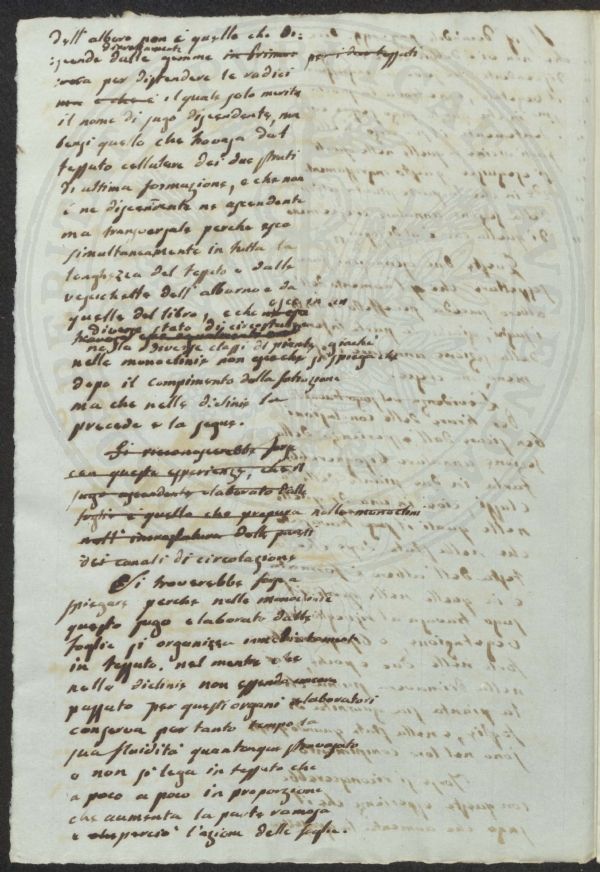 dell'albero non è quello che di:
direttamente
:scende dalle gemme in prima per i due tessuti
per discendere le radici
il quale solo merita
il nome di sugo discendente, ma
bensi quello che trovasi dal
tessuto cellulare dei due strati
di ultima formazione, e che non
è ne discendente ne ascendente
ma transversale perche esce
simultaneamente in tutta la
longhezza del tessuto e dalle
vescichette dell'alburno e da
quelle del libro, e che esce in un
diverso stato di circostanze
nelle diverse classi di piante, giacchè
nelle monoclinie non che
dopo il compimento della
ma che nelle diclinie la
precede e la segue.
Si riconoscerebbe forse
con queste esperienze, che il
sugo ascendente elaborato dalle
foglie è quello che prepara nelle monoclini
delle parti
dei canali di circolazione
Si troverebbe forse a
spiegare perche nelle monoclinie
questo sugo elaborato dalle
foglie si organizza immediatamente
in tessuto. nel mentre che
nella diclinie non essendo ancora
passato per questi organi elaboratori
conserva per tanto tempo la
sua fluidità quantunque stravasato
e non si lega in tessuto che
a poco a poco in proporzione
che aumenta la parte ramosa
e che perciò l'azione delle foglie.